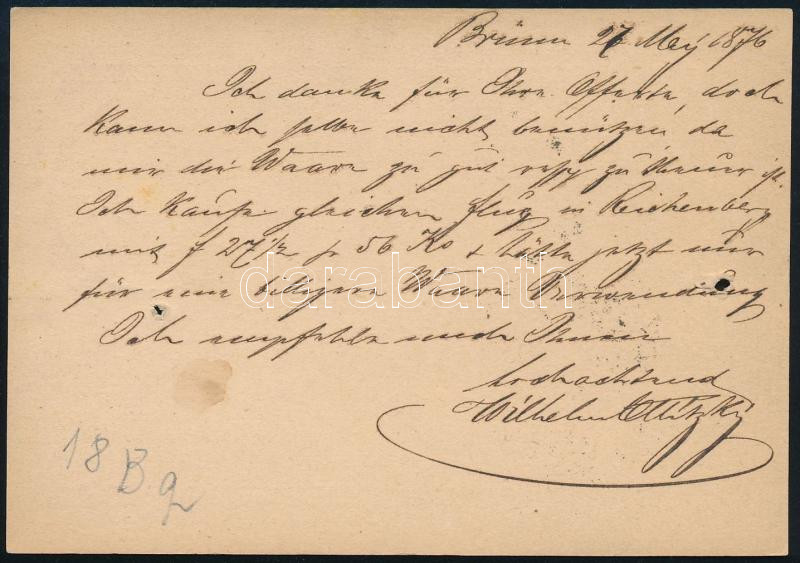 Brünn 27 Mey 1876
Ich danke für Ihre Offerte, doch
kann ich selbe nicht benützen da
mir die Waare zu gut resp zu theuer ist.
Ich kaufe gleichen flug in Reichenberg
mit f 27 1/2 p 56 Ko & hätte jetzt nur
für eine billigere Waare Verwendung
Ich empfehle mich Ihnen
hochachtend
Wilhelm
darabanth
18 B q